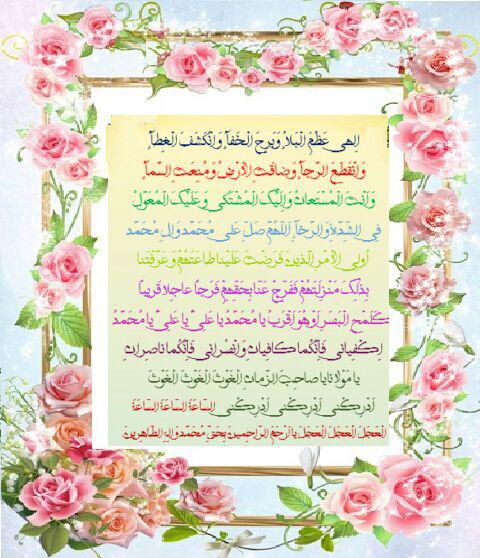 اِلهی عَظُمَ الْبَلاَّءُ وَبَرِحَ الْخَفاَّءُ وَانْکَشَفَ الْغِطاَّءُ
وَانْقَطَعَ الرَّجاَّءُ وَضاقَتِ الاْرْضُ وَمُنِعَتِ السَّماَّءُ
وَاَنْتَ الْمُسْتَعانُ وَاِلَیْکَ الْمُشْتَکی وَعَلَیْکَ الْمُعَوَّلُ
فِی الشِّدَّهِ وَالرَّخاَّءِ اَللّهُمَّ صَلِّ عَلی مُحَمَّدٍ وَ الِ مُحَمَّدٍ
اُولِی الاْمْرِ الَّذینَ فَرَضْتَ عَلَیْنا طاعَتَهُمْ وَ عَرَّفْتَنا
بِذلِکَ مَنْزِلَتَهُمْ فَفَرِّجْ عَنّا بِحَقِّهِمْ فَرَجاً عاجِلا قَریباً
کَلَمْحِ الْبَصَرِ اَوْ هُوَ اَقْرَبُ یا مُحَمَّدُ یا عَلِیُّ یا عَلِیُّ یا مُحَمَّدُ
اِکْفِیانی فَاِنَّکُما کافِیانِ وَانْصُرانی فَاِنَّکُما ناصِرانِ
یا مَوْلانا یا صاحِبَ الزَّمانِ الْغَوْثَ الْغَوْثَ الْغَوْثَ
اَدْرِکْنی اَدْرِکْنی اَدْرِکْنی السّاعَهَ السّاعَهَ السّاعَهَ
الْعَجَلَ الْعَجَلَ الْعَجَلَ یا اَرْحَمَ الرّاحِمینَ بِحَقِّ مُحَمَّدٍ وَالِهِ الطّاهِرینَ